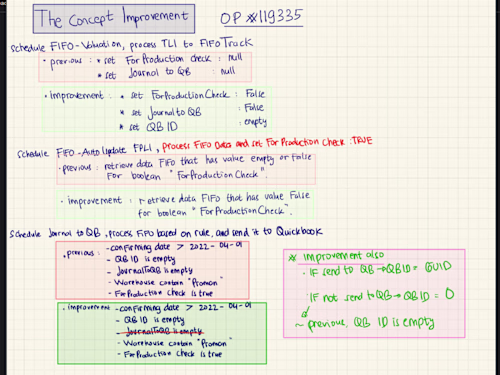 The Concept Improvement
OP #119335
Schedule FIFO-Valuation, process TLI to FIFOTruck
• previous : * set ForProductionCheck : null
* set Journal to QB : null
• improvement : * set ForProductionCheck : False
* set JournaltoQB : False
* set QB ID : empty
Schedule FIFO-AutoUpdate FPLI, process FIFO Data and set For Production Check : TRUE
• previous : retrieve data FIFO that has value empty or False
For boolean "ForProductionCheck".
• improvement : retrieve data FIFO that has value False
for boolean "ForProductionCheck".
Schedule Journal to QB, process FIFO based on rule, and send it to Quickbook
• previous : - confirming date > 2022-04-01
- QB ID is empty
- JournalToQB is empty
- Warehouse contain "Promon"
- ForProduction Check is true
• improvement - confirming date > 2022-04-01
- QB ID is empty
- JournalToQB is empty
- Warehouse contain "Promon"
- ForProduction Check is true
* improvement also
• IF send to QB → QB ID = GUID
IF not send to QB → QB ID = 0
~ previous, QB ID is empty